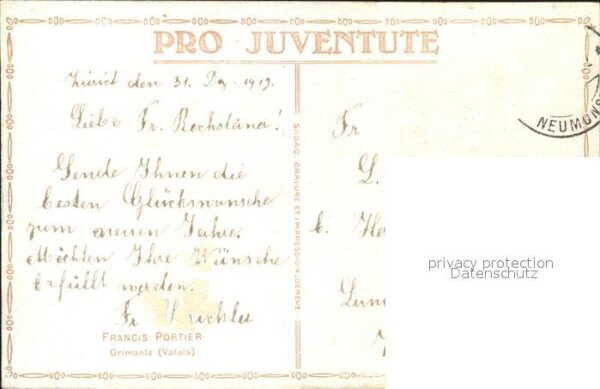 PRO JUVENTUTE
Zürich den 31. Dez. 1919.
Liebe Fr. Rechsteiner!
Sende Ihnen die
besten Glückswünsche
zum neuen Jahre.
Möchten Ihre Wünsche
Erfüllt werden.
Fr.
FRANCIS PORTIER
Grimentz (Valais)
SADAG, GRAVURE ET IMPRESSION, GENÈVE
Fr
L.
b. He
NEUMÜNS
privacy protection
Datenschutz